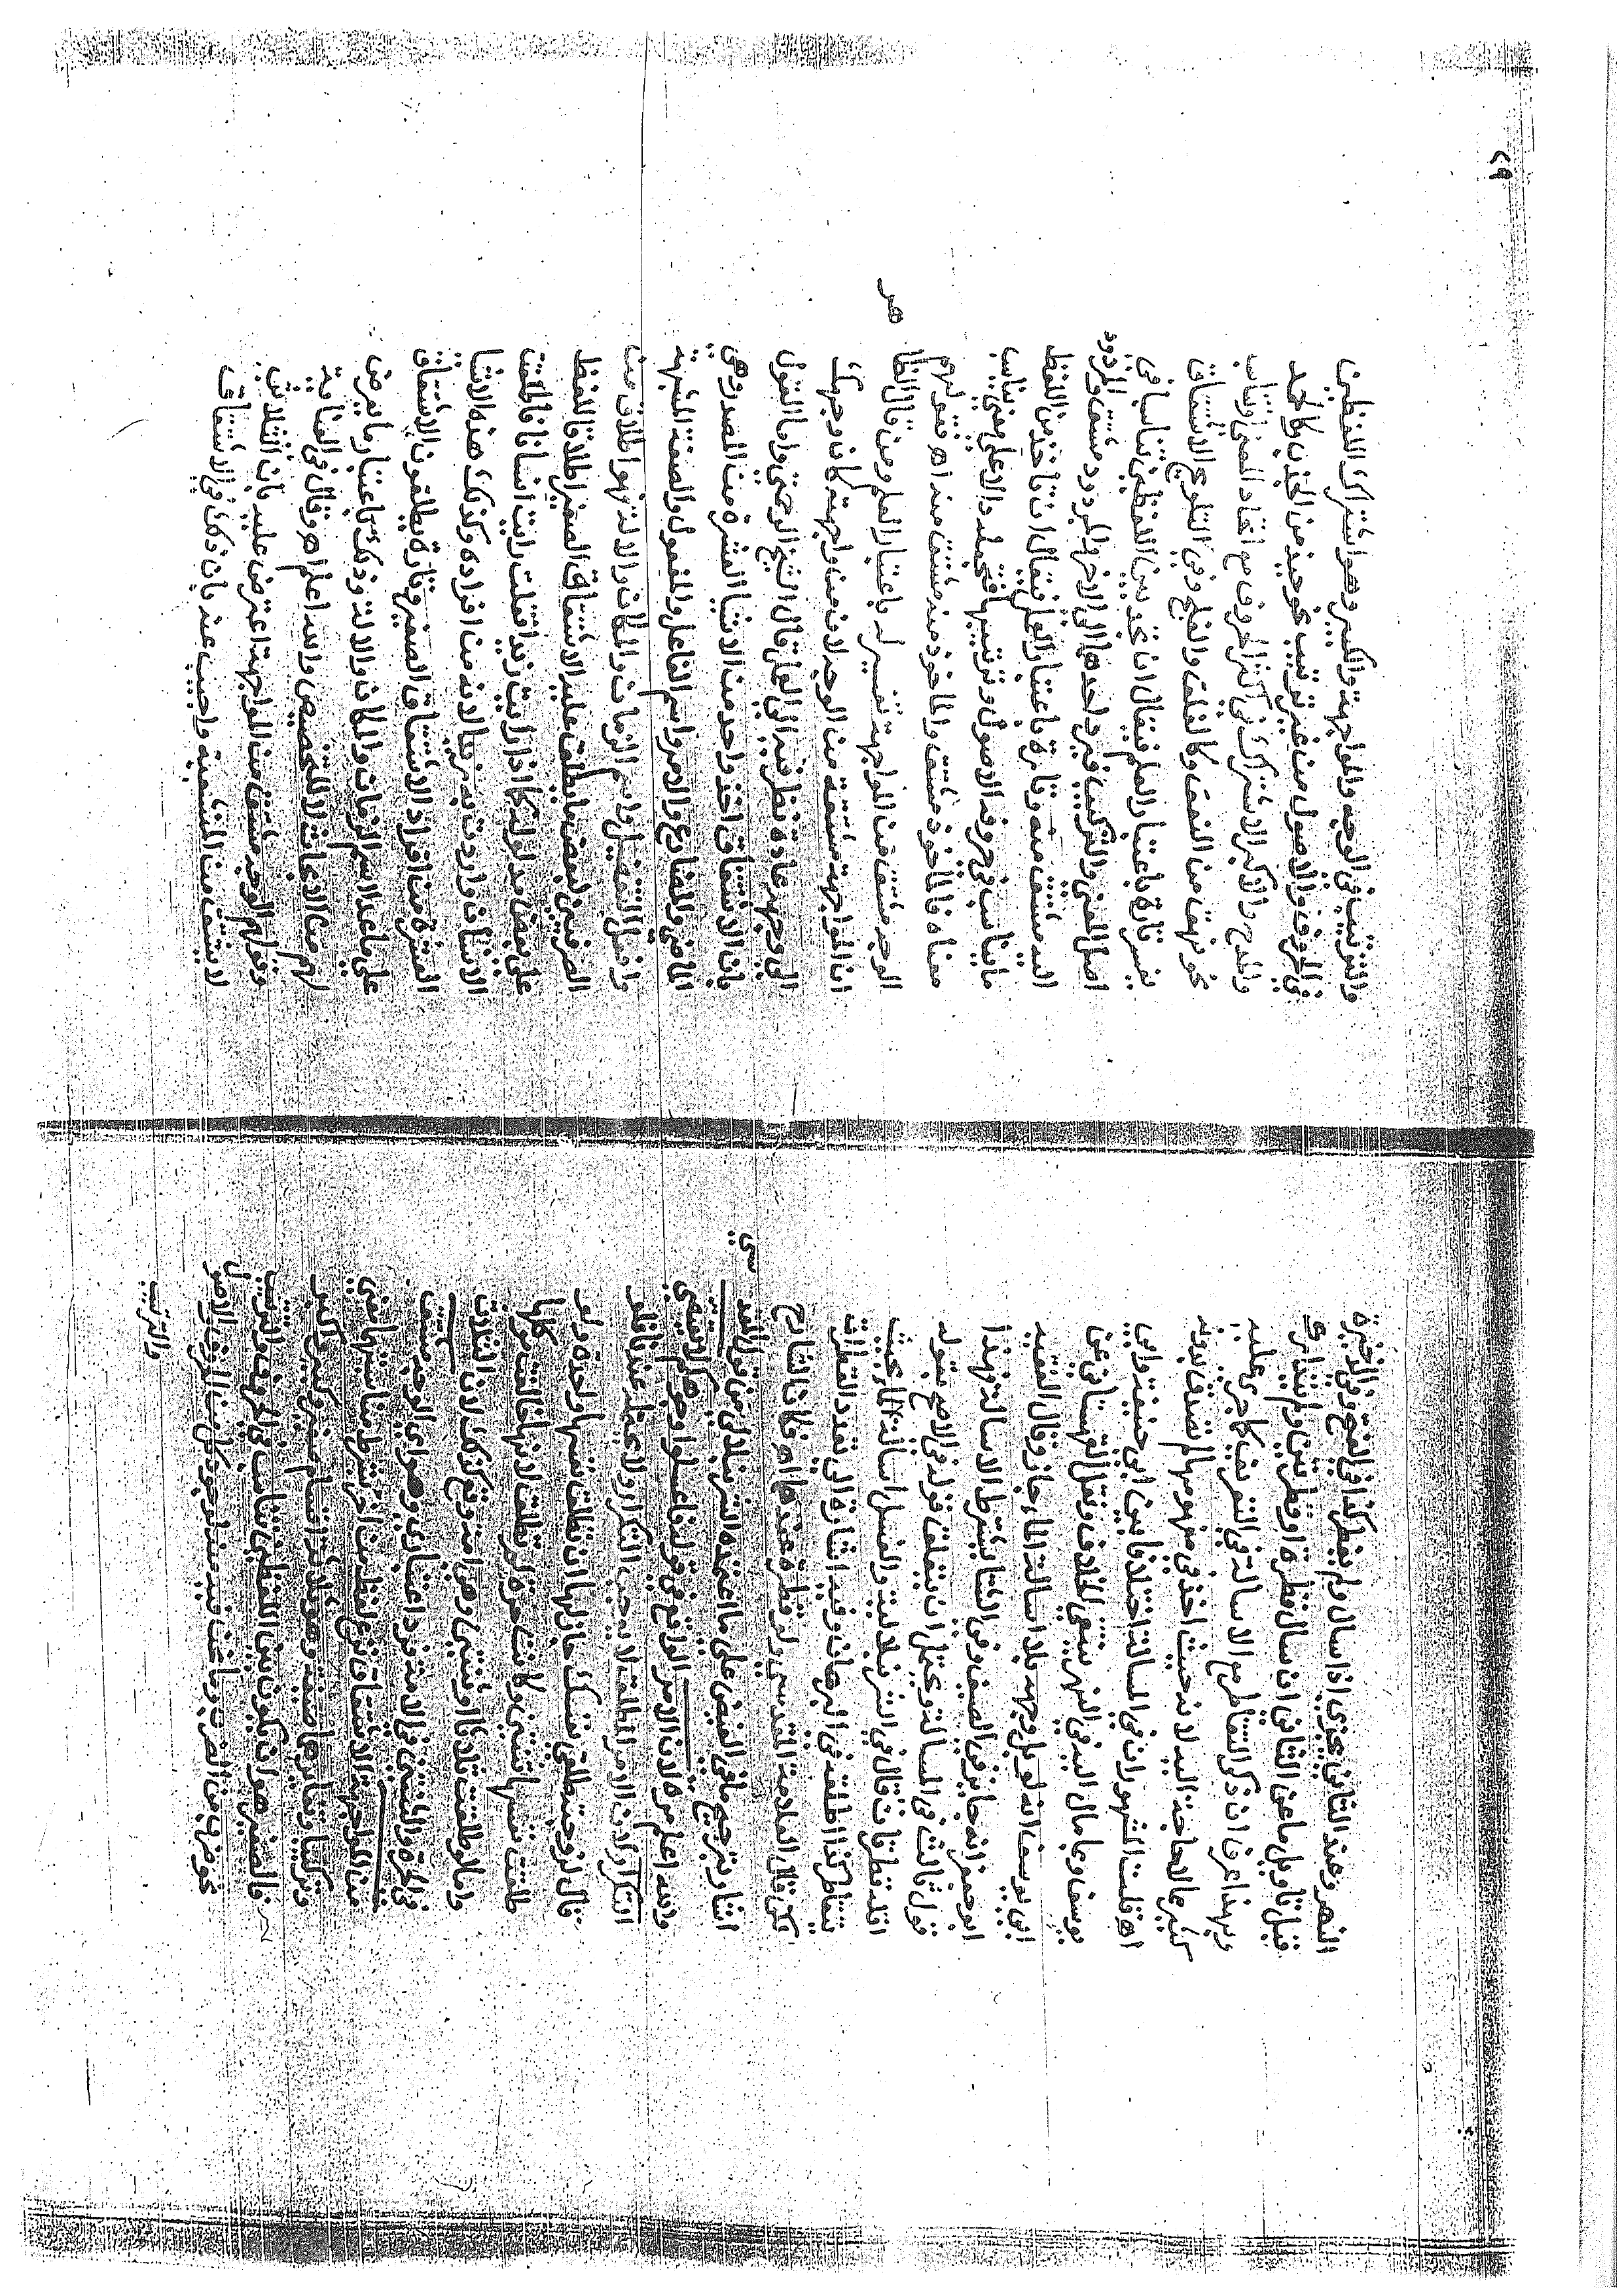 النهر وعند الثاني يجزي اذا سال ولم يقطر كذا في الفتح وفي الذخيرة
قيل تأويل ما عن الثاني ان سال قطرة او قطرتين ولم يتدارك
وبهذا عرف ان ذكر التقاطر مع الاسالة في التعريف كما جرى عليه
كثير مما لا حاجة اليه لانه حيث اخذ في مفهومها لم تصدق بدونه
اه قلت المشهور ان في المسالة اختلافا بين ابي حنيفة وابي
يوسف وعما مال اليه في النهر ينتفي الخلاف ونقل القهستاني عن
ابي يوسف انه لو بل وجهه بلا اسالة الماء جاز وقال الفقيه
ابو جعفر انه جايز في الصيف وفي الشتا يشترط الاسالة فهذا
قول ثالث في المسالة ويحتمل ان يتعلق قوله في الاصح بقوله
اقله قطرتان قال في الشرنبلالية والغسل اسالة الماء بحيث
يتقاطر كذا اطلقه في البرهان وفيه اشارة الى تعدد القطرات
لكن قال العلامة المقدسي ولو قطرة عندهما اه فكان الشارح
اشار بترجيح ما في الفيض على ما اعتمده الشرنبلالي من قول المقدسي
والله اعلم مرة لان الامر الواقع في قوله فاغسلوا وجوهكم لا يقتضي
التكرار لان الامر المطلق لا يوجب التكرار ولا يحتمله عندنا فلو
قال لزوجته طلقي نفسك جاز لها ان تطلق نفسها واحدة ولو
طلقت نفسها ثنتين وكانت حرة لم تطلق لانها خالفت موكلها
واما لو طلقت ثلاثا او ثنتين وهي امة وقع كذلك لان الثلاث
في الحرة والثنتين في الامة فرد اعتباري وهو اي الوجه مشتق
من المواجهة الاشتقاق نزع لفظ من اخر بشرط مناسبتهما معنى
وتركيبا وتغايرهما صيغة وهو ثلاثة اقسام صغير وكبير واكبر
فالصغير هو ان يكون بين اللفظين تناسب في الحروف والترتيب
نحو ضرب من الضرب وما نحن فيه منه لوجود كل من الحروف والاصول
والترتيب
٤٩
والترتيب في الوجه والمواجهة والكبير وهو اشتراك اللفظين
في الحروف والاصول من غير ترتيب نحو جبذ من الجذب وكالحمد
والمدح والاكبر الاشتراك في اكثر الحروف مع اتحاد المعنى او تناسب
نحو نهق من النعق وكالفلق والفلج وفي التلويح الاشتقاق
يفسر تارة باعتبار العلم فيقال ان تجد بين اللفظين تناسبا في
اصل المعنى والتركيب فترد احدهما الى الاخر والمردود مشتق والمردود
اليه مشتق منه وتارة باعتبار العمل فيقال ان تاخذ من اللفظ
ما يناسبه في حروفه الاصول وترتيبها فتجعله دالا على معنى يناسب
معناه فالماخوذ مشتق والماخوذ منه مشتق منه اه فقولهم
الوجه مشتق من المواجهة تفسير له باعتبار العلم ومن قال الظاهر
ان المواجهة مشتقة من الوجه لا من واجهته كان وجهك
الى وجهه عادة نظر فيه الى العمل قال الشيخ الرحمتي واما القول
بان الاشتقاق اخذ واحد من الاشيا العشرة من المصدر وهي
الماضي والمضارع والامر واسم الفاعل والمفعول والصفة المشبهة
وافعل التفضيل واسم الزمان والمكان والالة فهو اطلاق من
الصرفيين لبعض ما يطلق عليه الاشتقاق الصغير اطلاقا للفظ
على بعض مدلوله كما اذا رايت زيدا فقلت رايت انسانا فاطلقت
الانسان واردت به زيدا لانه من افراده وكذلك هذه الاشيا
العشرة من افراد الاشتقاق الصغير وتارة يطلقون الاشتقاق
على ما عدا اسم الزمان والمكان والالة وذلك باعتبار ما يعرض
لهم من الاعانة للتخصيص والله اعلم اه وقال في العناية
وقولهم الوجه مشتق من المواجهة اعترض عليه بان الثلاثي
لا يشتق من المتشعبة واجيب عنه بان ذلك في الاشتقاق